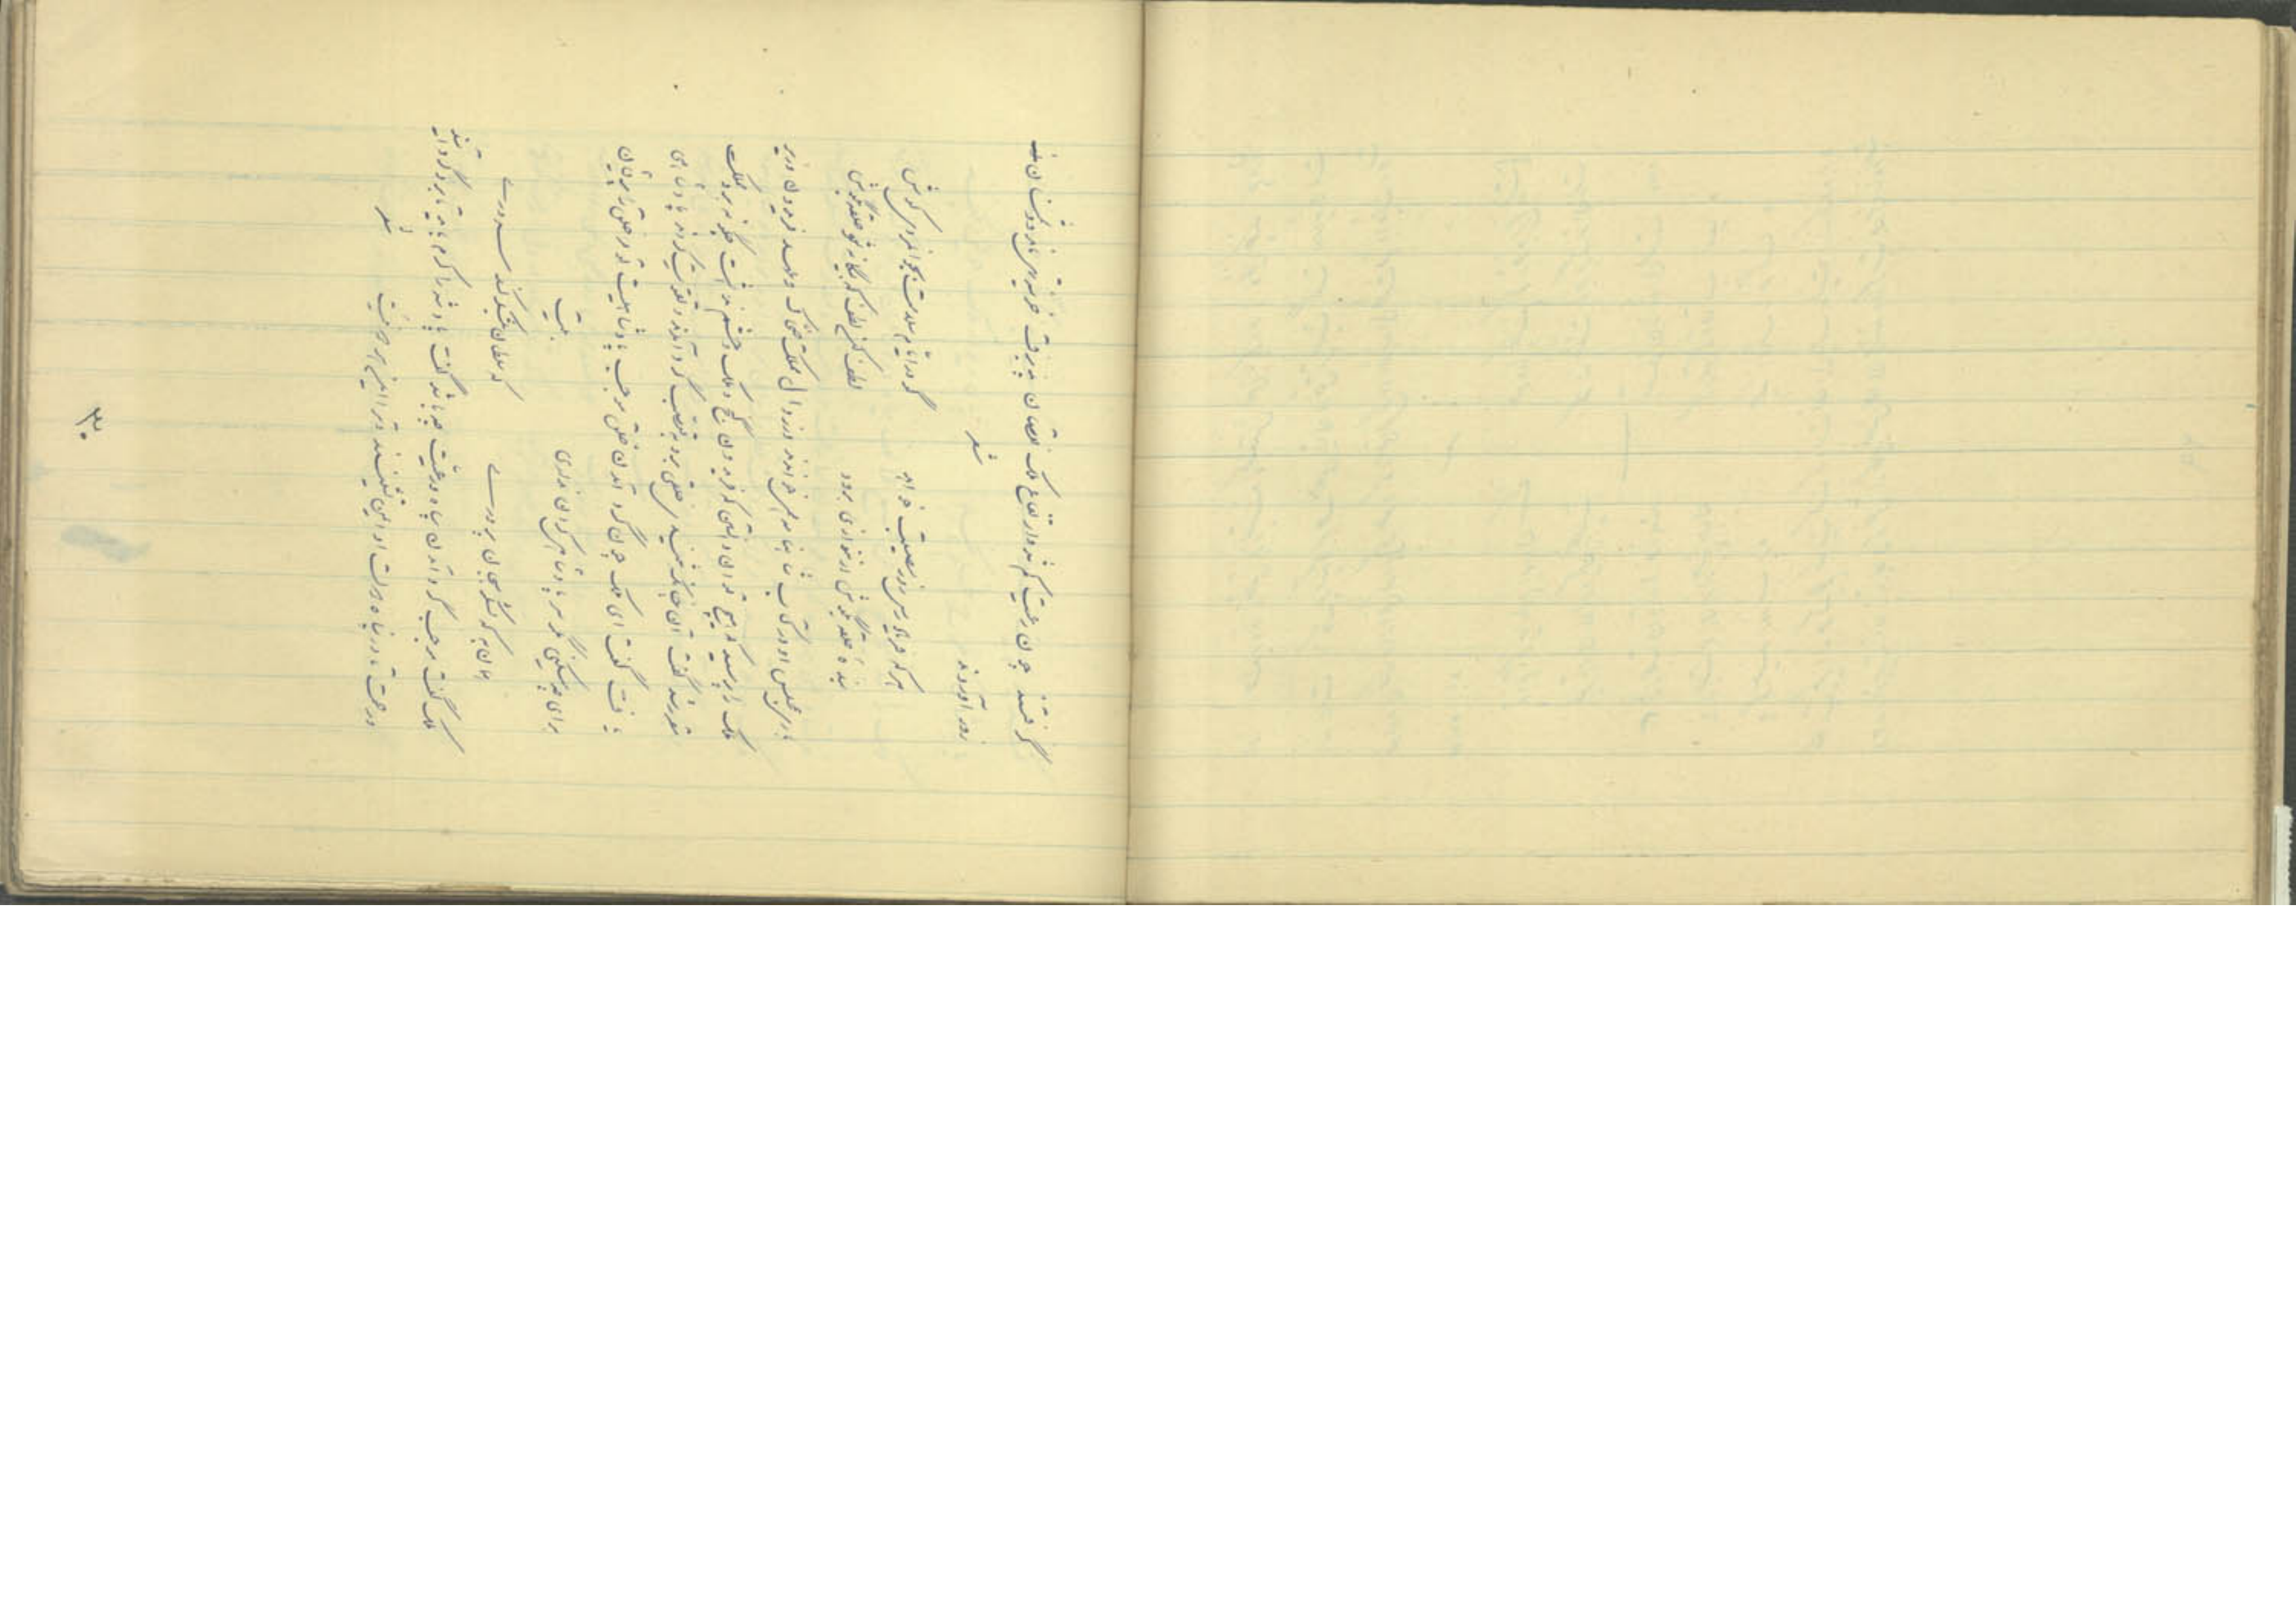 گرفتند چون رعیت کم شد و ارتفاع ملک نقصان پذیرفت خزینه تهی ماند و دشمنان
زور آوردند شعر
هر که فریادرس روز مصیبت خواهد گو در ایام سلامت بجوانمردی کوش
بنده حلقه بگوش ار ننوازی برود لطف کن لطف که بیگانه شود حلقه بگوش
باری بمجلس او در کتاب شاهنامه همی خواندند در زوال مملکت ضحاک و عهد فریدون وزیر
ملک را پرسید که هیچ توان دانستن که فریدون گنج و ملک و حشم نداشت چگونه برو مملکت
مقرر شد گفت آن چنانکه شنیدی خلقی برو بتعصب گرد آمدند و تقویت کردند پادشاهی
یافت گفت ای ملک چون گرد آمدن خلقی موجب پادشاهیست تو مر خلق را پریشان
برای چه میکنی مگر سر پادشاهی کردن نداری بیت
همان به که لشکر بجان پروری که سلطان بلشکر کند سروری
ملک گفت موجب گرد آمدن سپاه و رعیت چه باشد گفت پادشه را کرم باید تا برو گرد آیند
و رحمت تا در پناه دولت او ایمن نشینند و ترا این هر دو نیست شعر
۳۰